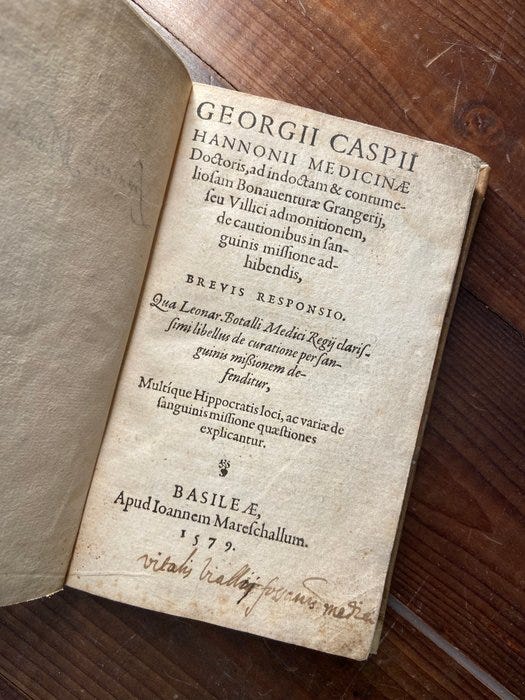 GEORGII CASPII
HANNONII MEDICINÆ
Doctoris, ad indoctam & contume-
liosam Bonauenturæ Grangerij,
seu Villici admonitionem,
de cautionibus in san-
guinis missione ad-
hibendis,
BREVIS RESPONSIO.
Qua Leonar. Botalli Medici Regij claris-
simi libellus de curatione per san-
guinis missionem de-
fenditur,
Multíque Hippocratis loci, ac variæ de
sanguinis missione quæstiones
explicantur.
BASILEÆ,
Apud Ioannem Mareschallum.
1579.
vitalis